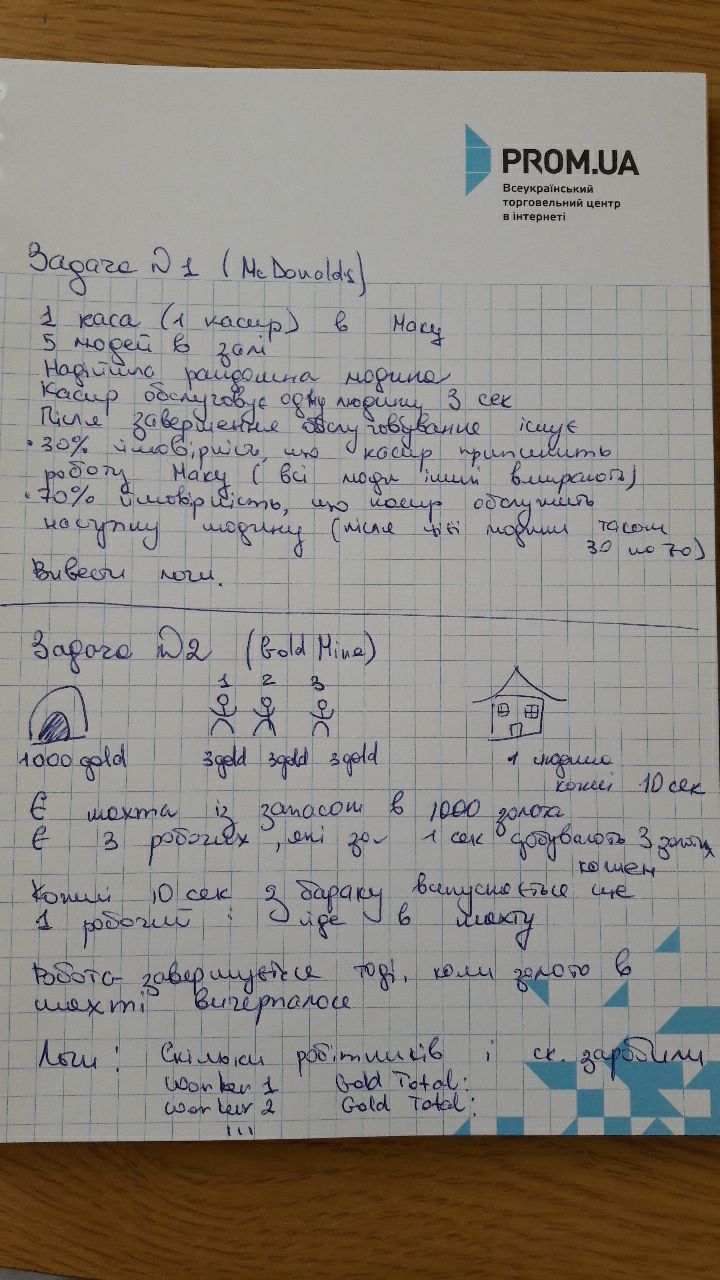 PROM.UA
Всеукраїнський
торговельний центр
в інтернеті
Задача №1 (McDonalds)
1 каса (1 касир) в Маку
5 людей в залі
Надійшла рандомна людина
Касир обслуговує одну людину 3 сек
Після завершення обслуговування існує
• 30% ймовірність, що касир припинить
роботу Маку (всі люди інші вмирають)
• 70% ймовірність, що касир обслужить
наступну людину (після цієї людини також
30 на 70)
Вивести логи.
Задача №2 (Gold Mine)
1 2 3
1000 gold 3gold 3gold 3gold 1 людина
кожні 10 сек
Є шахта із запасом в 1000 золота
Є 3 робочих, які за 1 сек добувають 3 золотих
кожен
Кожні 10 сек з бараку випускається ще
1 робочий і йде в шахту
Робота завершується тоді, коли золото в
шахті вичерпалося
Логи: Скільки робітників і ск. заробили
Worker 1 Gold Total:
Worker 2 Gold Total:
...